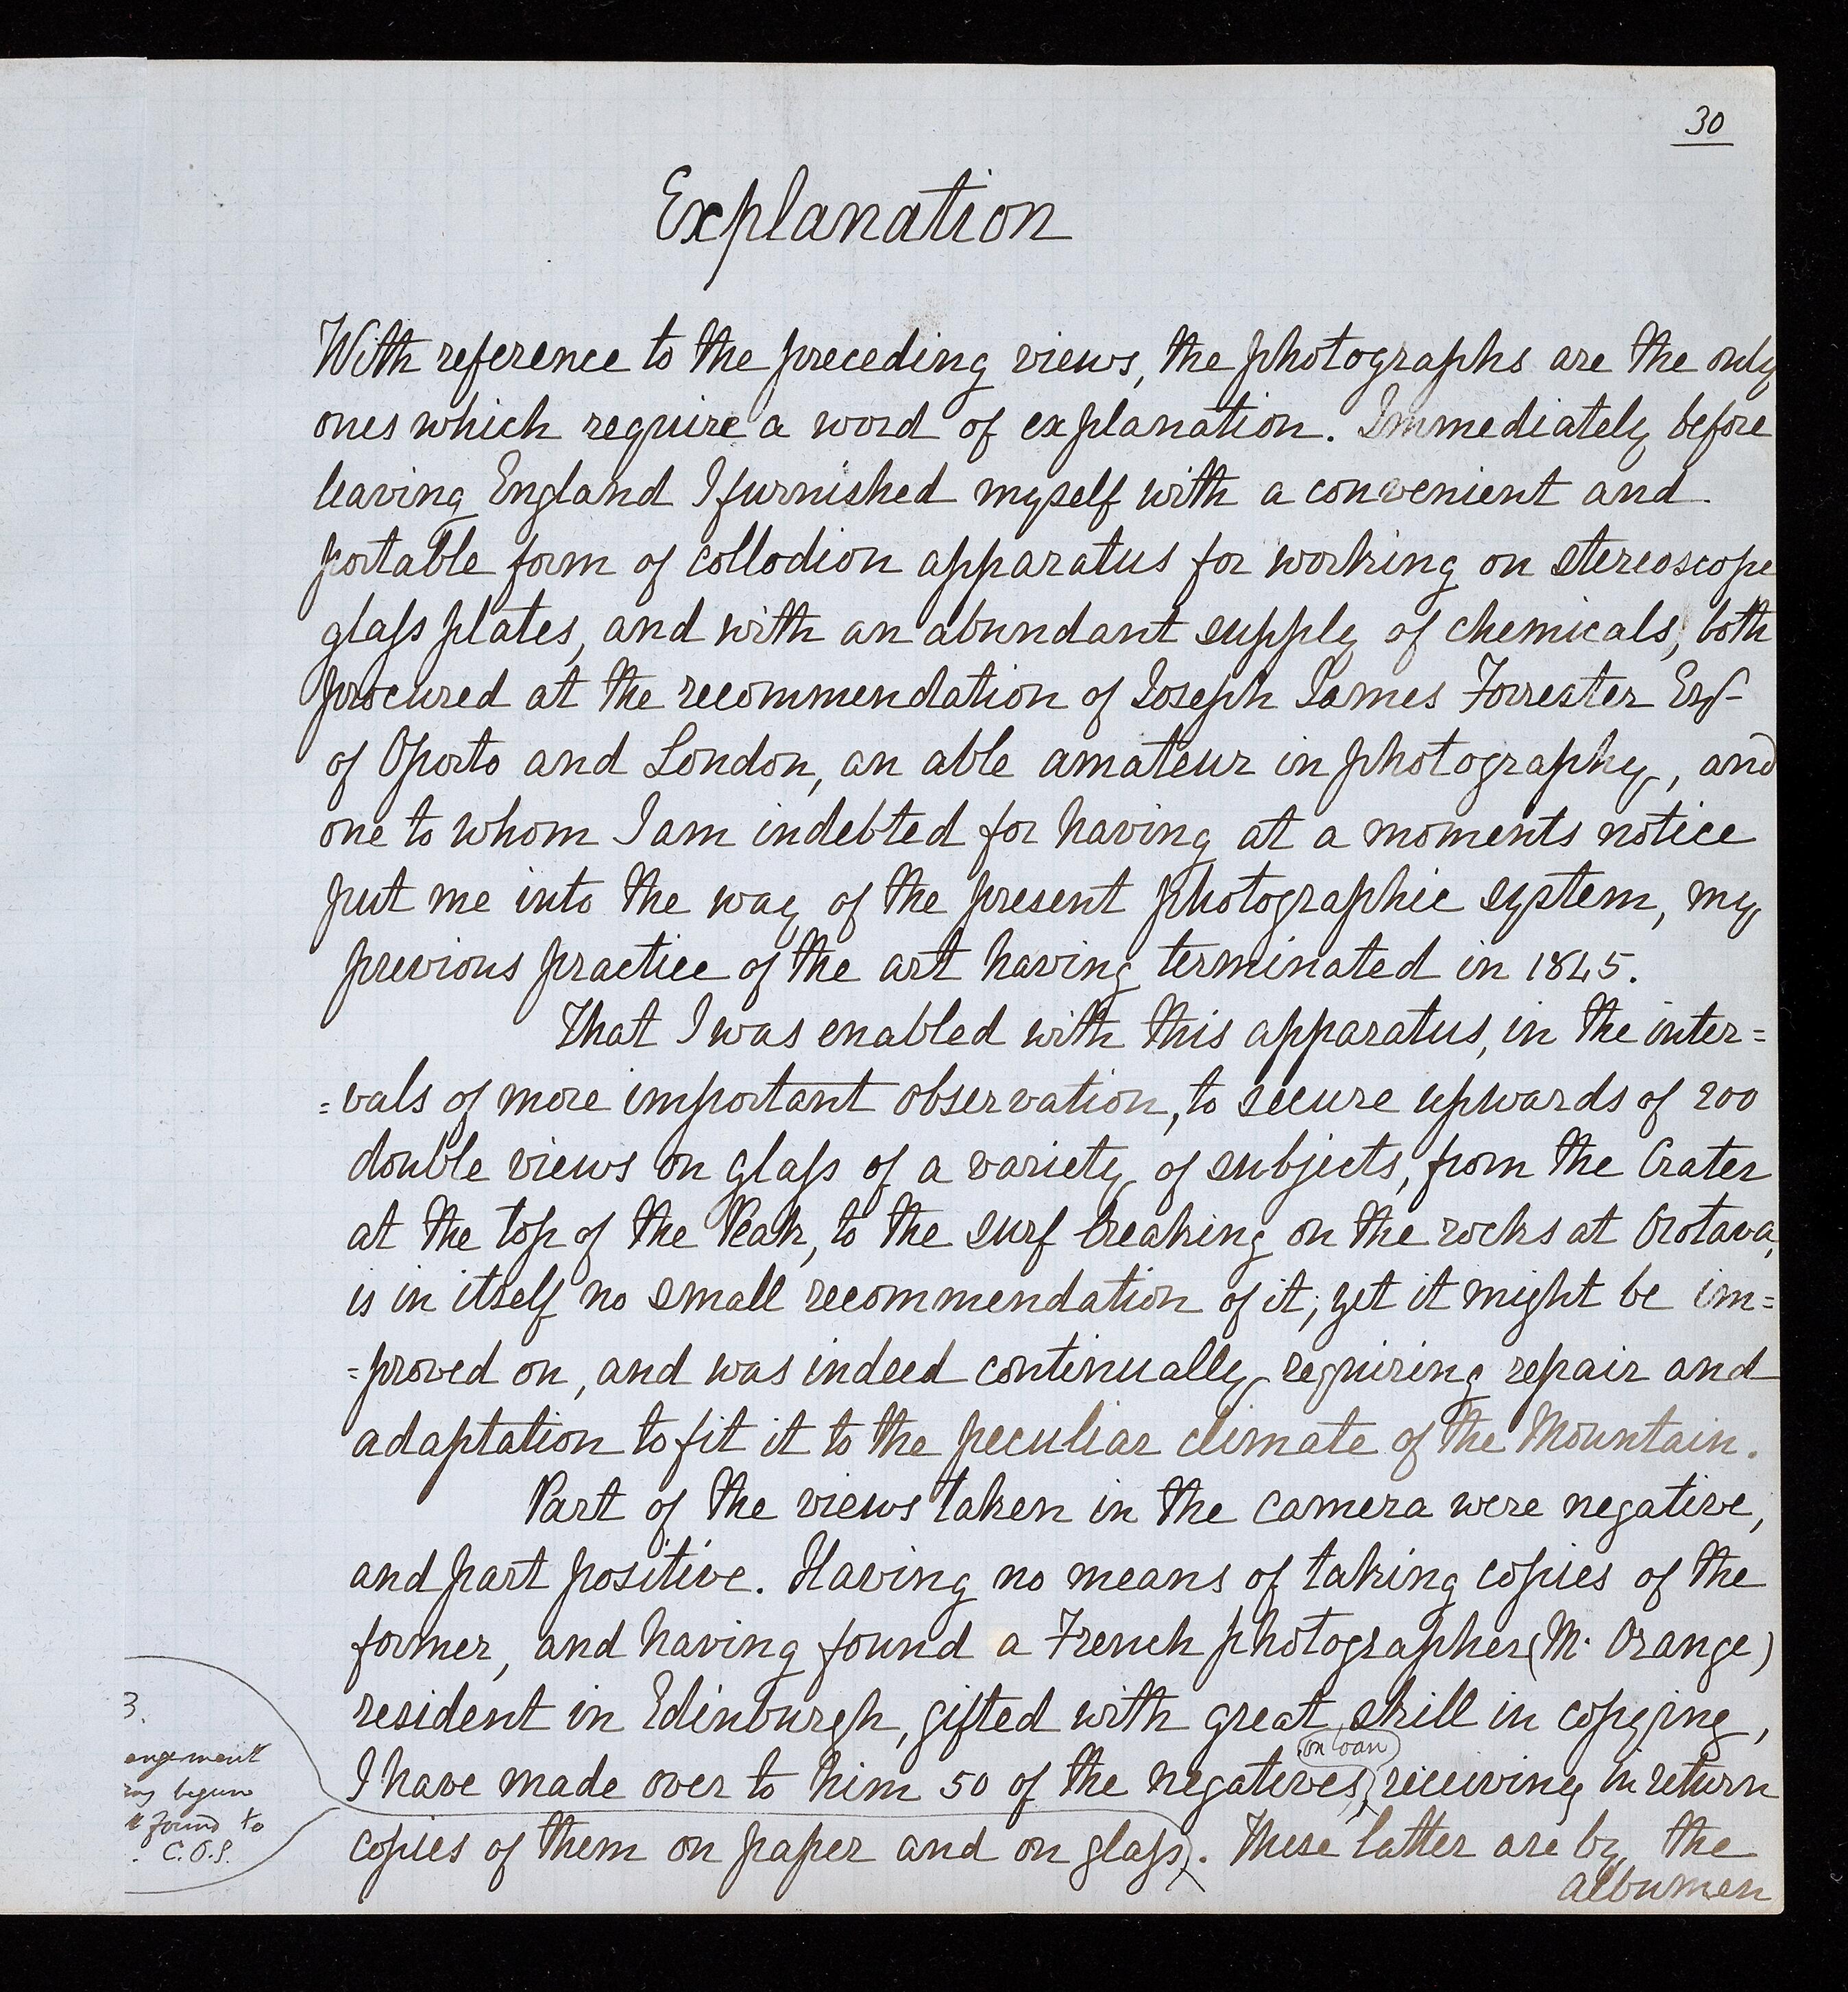 30
Explanation
With reference to the preceding views, the photographs are the only
ones which require a word of explanation. Immediately before
leaving England I furnished myself with a convenient and
portable form of collodion apparatus for working on stereoscope
glass plates, and with an abundant supply of chemicals, both
procured at the recommendation of Joseph James Forrester Esq
of Oporto and London, an able amateur in photography, and
one to whom I am indebted for having at a moments notice
put me into the way of the present photographic system, my
previous practice of the art having terminated in 1845.
That I was enabled with this apparatus, in the inter=
=vals of more important observation, to secure upwards of 200
double views on glass of a variety of subjects, from the Crater
at the top of the Peak, to the surf breaking on the rocks at Orotava,
is in itself no small recommendation of it; yet it might be im=
=proved on, and was indeed continually requiring repair and
adaptation to fit it to the peculiar climate of the Mountain.
Part of the views taken in the camera were negative,
and part positive. Having no means of taking copies of the
former, and having found a French photographer (M. Orange)
resident in Edinburgh, gifted with great skill in copying,
on loan
I have made over to him 50 of the negatives, receiving in return
copies of them on paper and on glass. These latter are by the
albumen
3.
angement
begun
found to
C.P.S.